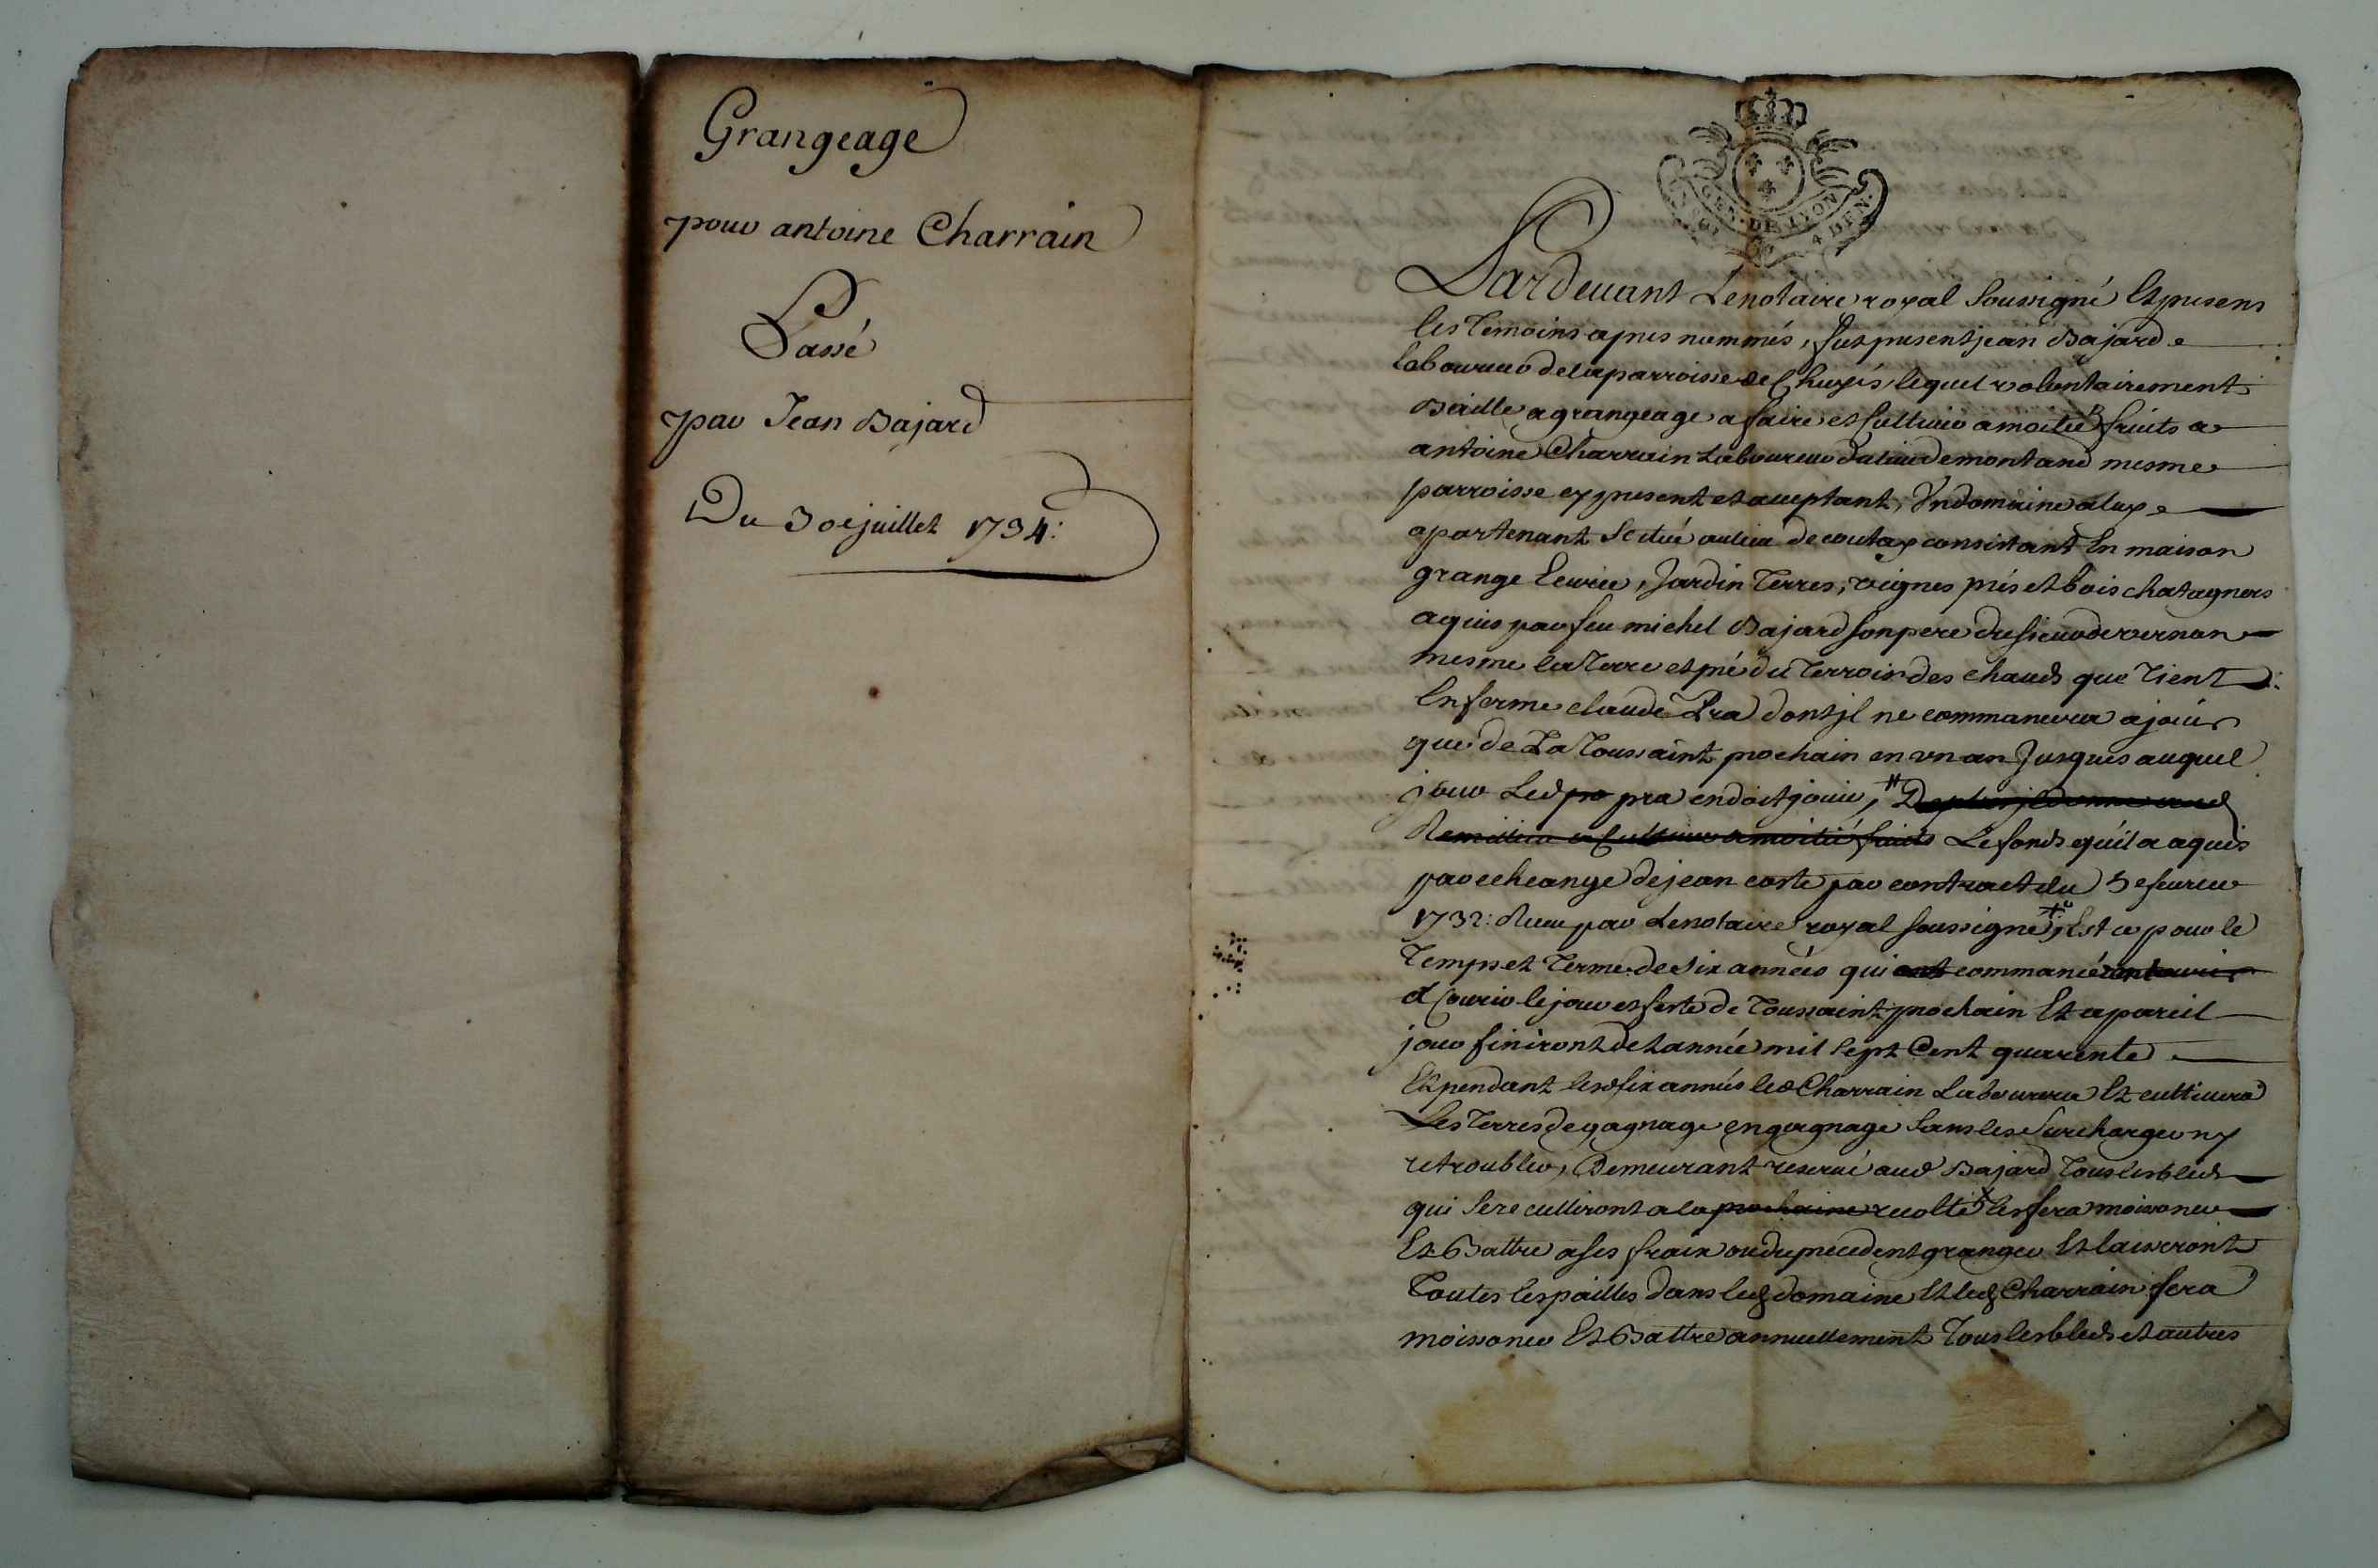 Grangeage
pour antoine Charrain
Passé
par Jean Bajard
Du 30e juillet 1734:
GEN. DE LYON
4 DEN.
Pardeuant Le notaire royal soussigné Et presens
les Temoins apres nommés, fut present jean Bajard
laboureur de la parroisse de lequel volontairement
Baille a grangeage a faire et Cultiuer a moitié fruits a
antoine Charrain Laboureur du lieu de montand mesme
parroisse cy present et acceptant, Un domaine a luy
apartenant scitué au lieu de coutay consistant En maison
grange Ecurie, Jardin Terres, vignes prés et bois chatagners
aquis par feu michel Bajard son pere du sieur de vernon
mesme la Terre et pré du Terroir des chauds que Tient
En ferme claude Pra dont jl ne commancera a jouir
que de La Toussaint prochain en vn an Jusques auquel
jour Led pra en doit jouir, De plus jl donne aud
a Cultiuer a moitié fruits Le fonds qu'il a aquis
par echeange de jean coste par contract du 5e feurier
1732: Receu par Le notaire royal soussigné, Est ce pour le
Temps et Terme de six années qui ont commancé
a Courir le jour et feste de Toussaint prochain Et a pareil
jour finiront de Lannée mil sept Cent quarente
Et pendant lesd six années led Charrain Labourera Et cultiuera
Les Terres de gagnage en gagnage sans les Surcharger ny
retroubler, Demeurant reserué aud Bajard Tous les bleds
qui se recuilliront a la prochaine recolte les fera moissoner
Et Battre a ses fraix ou du precedent granger Et laisseront
Toutes les pailles dans led domaine Et led Charrain fera
moissoner Et Battre annuellement Tous les bleds et autres